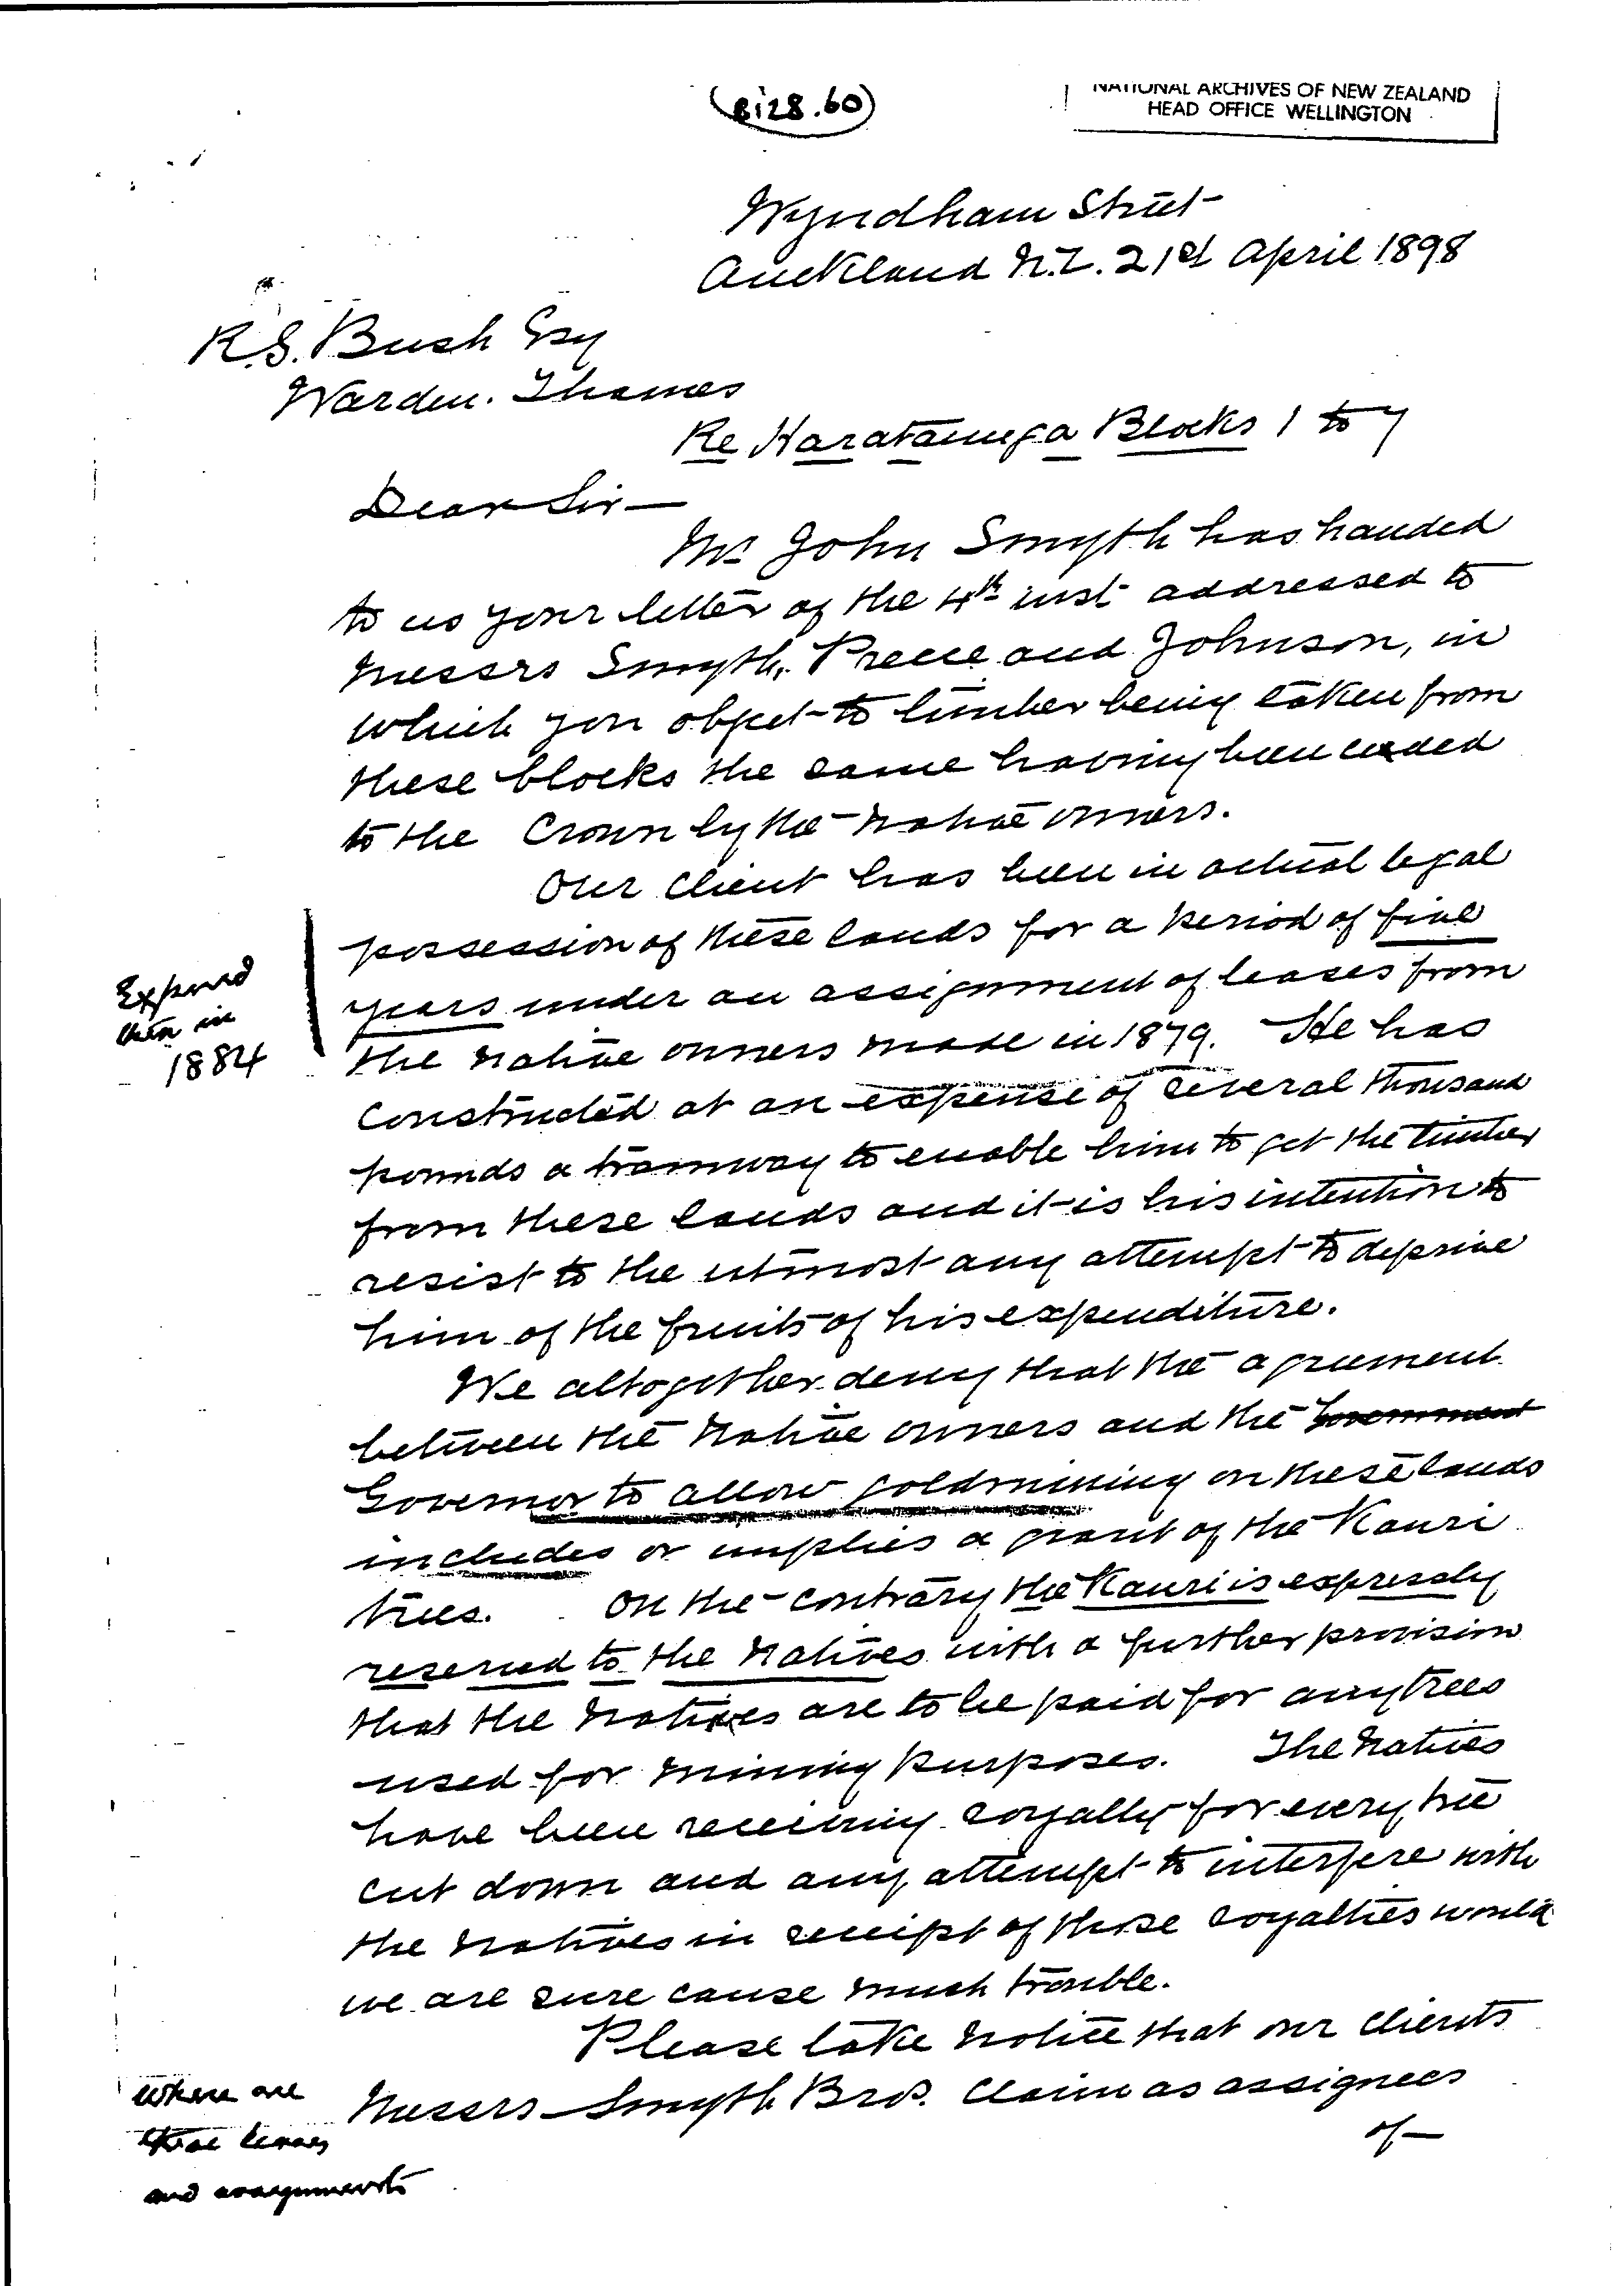 (B128.60)
NATIONAL ARCHIVES OF NEW ZEALAND
HEAD OFFICE WELLINGTON
Wyndham Street
Auckland N.Z. 21st April 1898
R.S. Bush Esq
Warden. Thames
Re Harataunga Blocks 1 to 7
Dear Sir —
Mr John Smyth has handed
to us your letter of the 4th inst addressed to
Messrs Smyth, Preece and Johnson, in
which you object to timber being taken from
these blocks the same having been ceded
to the Crown by the Native owners.
Our client has been in actual legal
possession of these lands for a period of five
years under an assignment of leases from
the Native owners made in 1879. He has
Expired
then in
1884
constructed at an expense of several thousand
pounds a tramway to enable him to get the timber
from these lands and it is his intention to
resist to the utmost any attempt to deprive
him of the fruits of his expenditure.
We altogether deny that the agreement
between the Native owners and the Government
Governor to allow goldmining on these lands
includes or implies a grant of the Kauri
trees. On the contrary the Kauri is expressly
reserved to the Natives with a further provision
that the Natives are to be paid for any trees
used for mining purposes. The Natives
have been receiving royalty for every tree
cut down and any attempt to interfere with
the Natives in receipt of these royalties would
we are sure cause much trouble.
Please take notice that our clients
Messrs Smyth Bros. claim as assignees
of —
Where are
these leases
and assignments